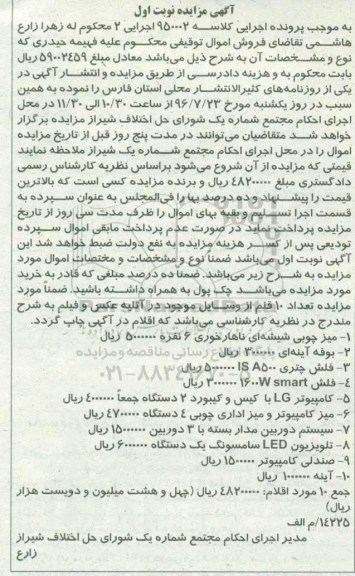 آگهی مزایده نوبت اول
به موجب پرونده اجرایی کلاسه ۹۵۰۰۰۲ اجرایی ۲ محکوم له زهرا زارع
هاشمی تقاضای فروش اموال توقیفی محکوم علیه فهیمه حیدری که
نوع و مشخصات آن به شرح ذیل می‌باشد معادل مبلغ ۵۹۰۰۲۴۵۹ ریال
بابت محکوم به و هزینه دادرسی از طریق مزایده و انتشار آگهی در
یکی از روزنامه‌های کثیرالانتشار محلی استان فارس را نموده به همین
سبب در روز یکشنبه مورخ ۹۶/۷/۲۳ از ساعت ۱۰/۳۰ الی ۱۱/۳۰ در محل
اجرای احکام مجتمع شماره یک شورای حل اختلاف شیراز مزایده برگزار
خواهد شد متقاضیان می‌توانند در مدت پنج روز قبل از تاریخ مزایده
اموال را در محل اجرای احکام مجتمع شماره یک شیراز ملاحظه نمایند
قیمتی که مزایده از آن شروع می‌شود براساس نظریه کارشناس رسمی
دادگستری مبلغ ۴۸۲۰۰۰۰۰ ریال و برنده مزایده کسی است که بالاترین
قیمت را پیشنهاد و ده درصد بها را فی‌المجلس به عنوان سپرده به
قسمت اجرا تسلیم و بقیه بهای اموال را ظرف مدت سی روز از تاریخ
مزایده پرداخت نماید در صورت عدم پرداخت مابقی اموال سپرده
تودیعی پس از کسر هزینه مزایده به نفع دولت ضبط خواهد شد این
آگهی نوبت اول می‌باشد ضمنا نوع و مشخصات و مختصات اموال مورد
مزایده به شرح زیر می‌باشد. ضمنا ده درصد مبلغی که قادر به خرید
مورد مزایده می‌باشد چک پول به همراه داشته باشید. ضمنا مورد
مزایده تعداد ۱۰ قلم از وسایل موجود در آتلیه عکس و فیلم به شرح
مندرج در نظریه کارشناسی می‌باشد که اقلام در آگهی چاپ گردد.
۱- میز چوبی شیشه‌ای ناهارخوری ۶ نفره ۵۰۰۰۰۰۰ ریال
۲- بوفه آینه‌ای ۳۰۰۰۰۰۰ ریال
۳- فلش چتری IS A۵۰۰ ۵۰۰۰۰۰۰ ریال
۴- فلش ۱۶۰۰W smart ۳۰۰۰۰۰۰ ریال
۵- کامپیوتر LG با کیس و کیبورد ۲ دستگاه جمعاً ۴۰۰۰۰۰۰ ریال
۶- میز کامپیوتر و میز اداری چوبی ۴ دستگاه ۴۷۰۰۰۰۰ ریال
۷- سیستم دوربین مدار بسته با ۳ دوربین ۱۵۰۰۰۰۰۰ ریال
۸- تلویزیون LED سامسونگ یک دستگاه ۶۰۰۰۰۰۰ ریال
۹- صندلی کامپیوتر ۱۵۰۰۰۰۰ ریال
۱۰- آینه ۱۰۰۰۰۰۰ ریال
جمع ۱۰ مورد اقلام: ۴۸۲۰۰۰۰۰ ریال (چهل و هشت میلیون و دویست هزار
ریال)
۱۴۲۲۵/م الف
مدیر اجرای احکام مجتمع شماره یک شورای حل اختلاف شیراز
زارع